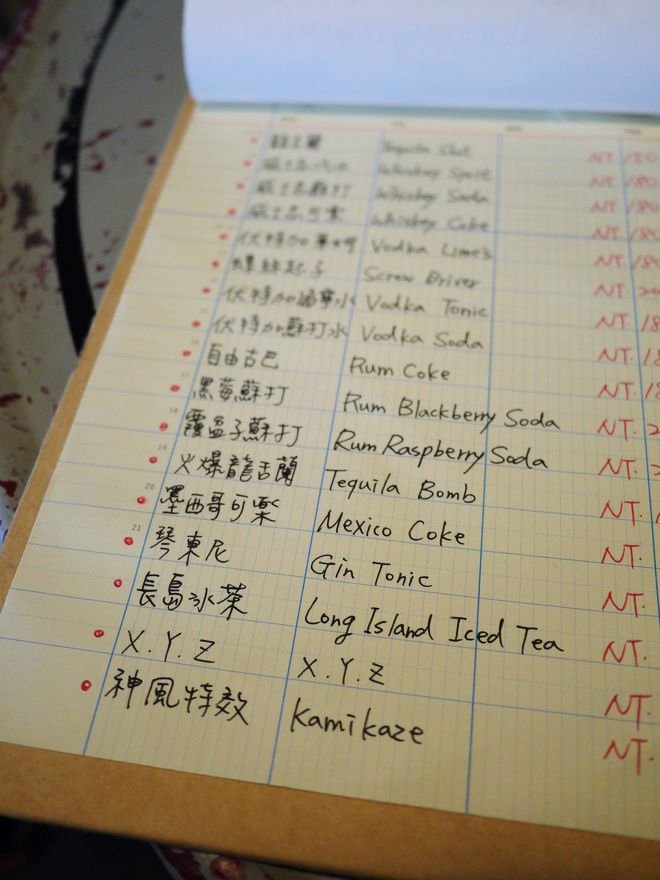 Tequila Shot NT. 180
Whiskey Sprit NT. 180
威士忌蘇打 Whiskey Soda NT. 180
威士忌可樂 Whiskey Coke NT. 180
伏特加萊姆 Vodka Lime's NT. 180
螺絲起子 Screw Driver NT. 2
伏特加通寧水 Vodka Tonic NT. 18
伏特加蘇打水 Vodka Soda NT. 18
自由古巴 Rum Coke NT. 18
黑莓蘇打 Rum Blackberry Soda NT. 2
覆盆子蘇打 Rum Raspberry Soda NT. 2
火爆龍舌蘭 Tequila Bomb NT.
20 墨西哥可樂 Mexico Coke NT.
21 琴東尼 Gin Tonic NT.
長島冰茶 Long Island Iced Tea NT.
X.Y.Z X.Y.Z NT.
神風特效 Kamikaze NT.